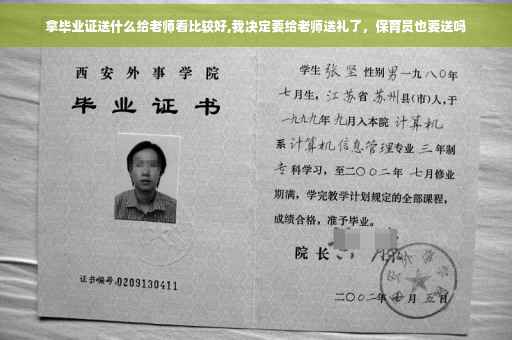 拿毕业证送什么给老师看比较好,我决定要给老师送礼了，保育员也要送吗
西安外事学院
毕业证书
证书编号:0209130411
学生 张坚 性别 男 一九八〇年
七月生，江苏省 苏州 县(市)人,于
一九九九年 九月入本院 计算机
系 计算机信息管理 专业 三 年制
专 科学习，至二〇〇二年 七月修业
期满，学完教学计划规定的全部课程，
成绩合格，准予毕业。
院长
二〇〇二年 七月 五日